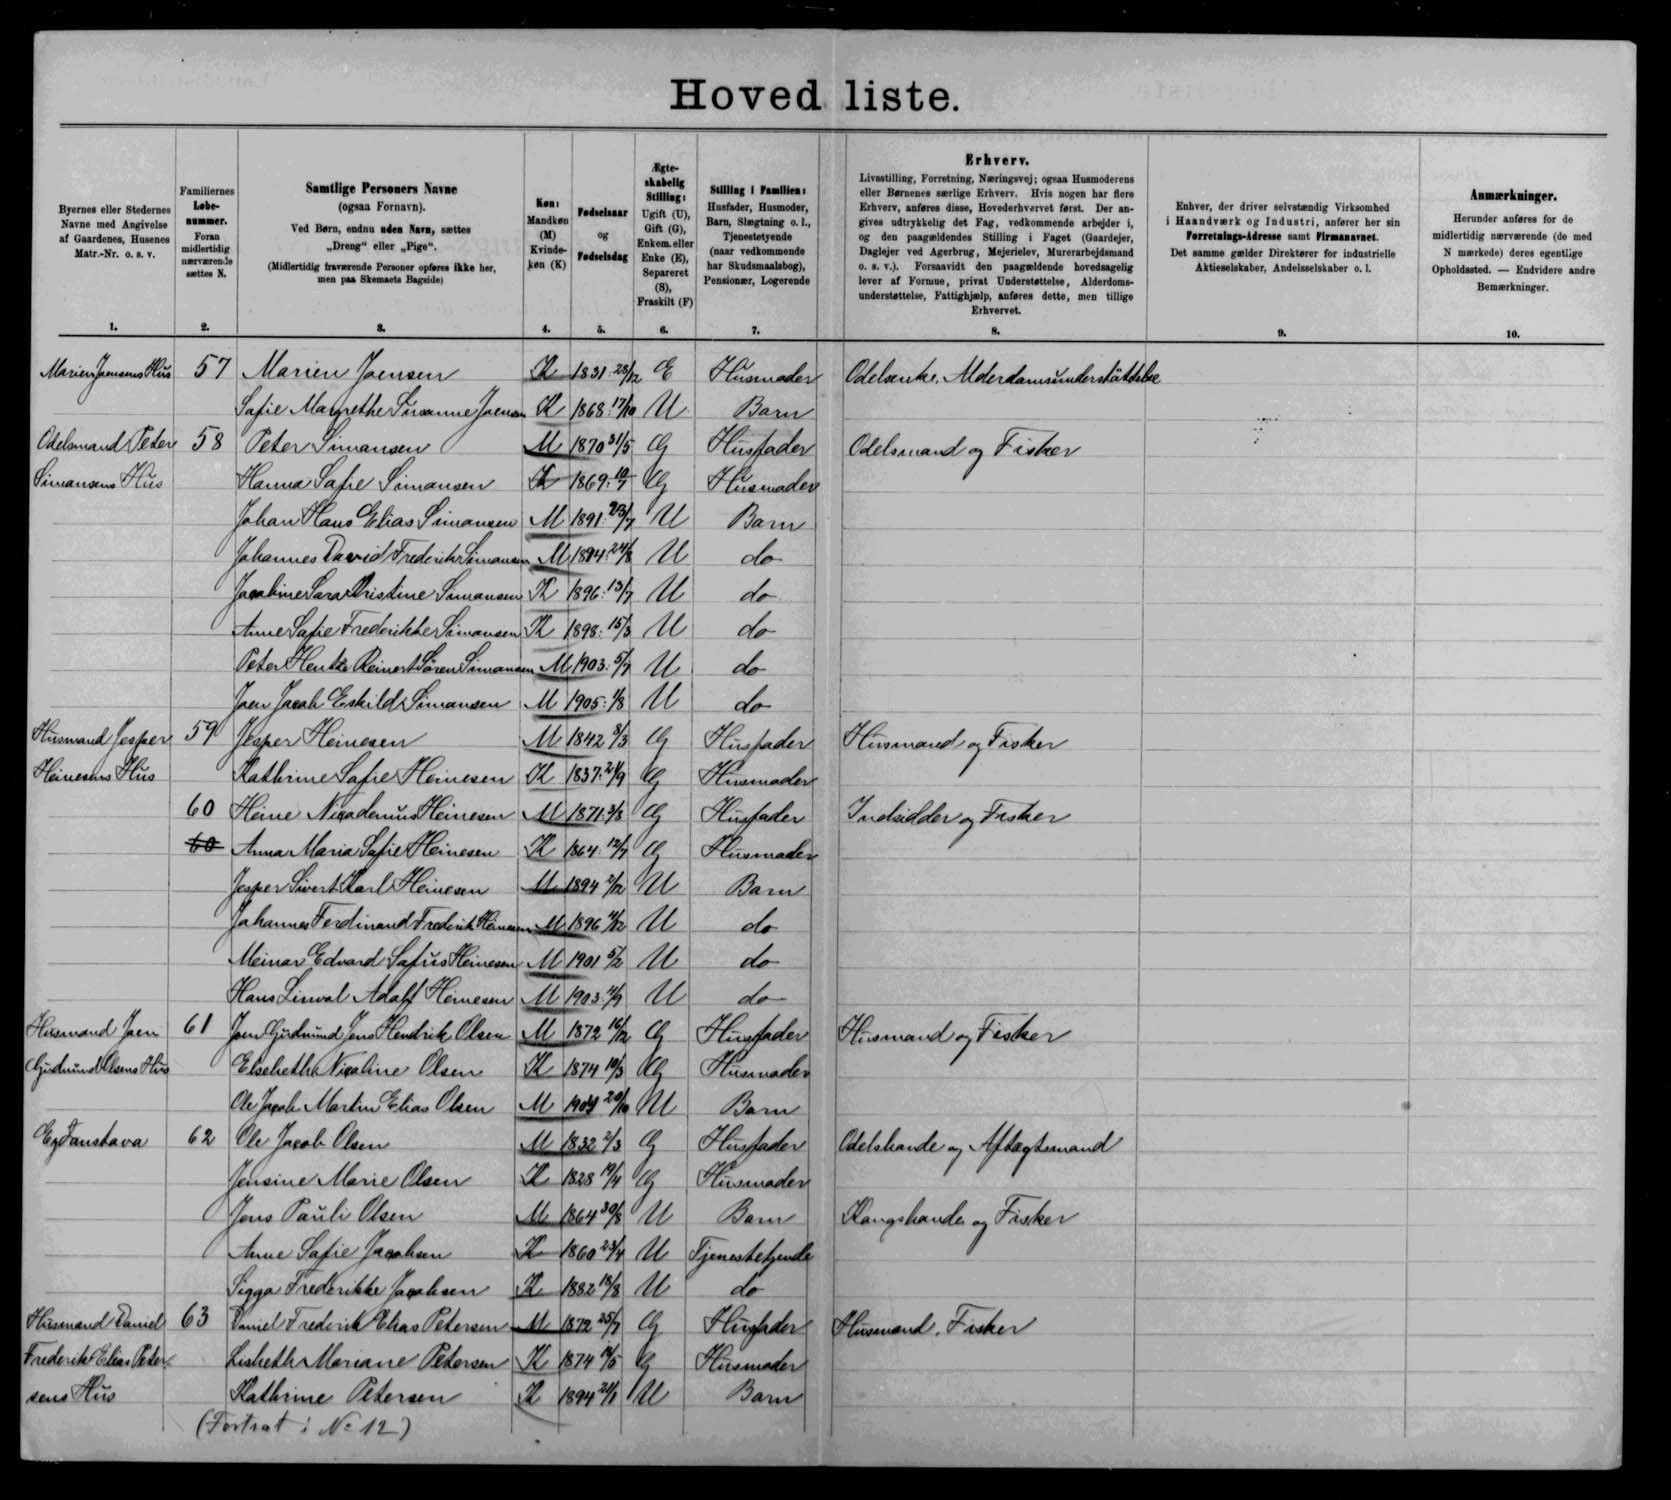 Hoved liste.
Byernes eller Stedernes Navne med Angivelse af Gaardenes, Husenes Matr.-Nr. o. s. v.
Familiernes Løbe-nummer. Foran midlertidig nærværende sættes N.
Samtlige Personers Navne
(ogsaa Fornavn).
Ved Børn, endnu uden Navn, sættes „Dreng“ eller „Pige“.
(Midlertidig fraværende Personer opføres ikke her, men paa Skemaets Bagside)
Køn: Mandkøn (M) Kvinde-køn (K)
Fødselsaar og Fødselsdag
Ægte-skabelig Stilling: Ugift (U), Gift (G), Enkem. eller Enke (E), Separeret (S), Fraskilt (F)
Stilling i Familien: Husfader, Husmoder, Barn, Slægtning o. l., Tjenestetyende (naar vedkommende har Skudsmaalsbog), Pensionær, Logerende
Erhverv.
Livsstilling, Forretning, Næringsvej; ogsaa Husmoderens eller Børnenes særlige Erhverv. Hvis nogen har flere Erhverv, anføres disse, Hovederhvervet først. Der an-gives udtrykkelig det Fag, vedkommende arbejder i, og den paagældendes Stilling i Faget (Gaardejer, Daglejer ved Agerbrug, Mejerielev, Murerarbejdsmand o. s. v.). Forsaavidt den paagældende hovedsagelig lever af Formue, privat Understøttelse, Alderdoms-understøttelse, Fattighjælp, anføres dette, men tillige Erhvervet.
Enhver, der driver selvstændig Virksomhed i Haandværk og Industri, anfører her sin Forretnings-Adresse samt Firmanavnet. Det samme gælder Direktører for industrielle Aktieselskaber, Andelsselskaber o. l.
Anmærkninger.
Herunder anføres for de midlertidig nærværende (de med N mærkede) deres egentlige Opholdssted. — Endvidere andre Bemærkninger.
1. 2. 3. 4. 5. 6. 7. 8. 9. 10.
Marien Joensens Hus 57 Marien Joensen K 1831 28/12 E Husmoder Odelsenke. Alderdomsunderstöttelse
Safie Margrethe Susanne Joensen K 1868 17/10 U Barn
Odelsmand Peter 58 Peter Simonsen M 1870 31/5 G Husfader Odelsmand og Fisker
Simonsens Hus Hanna Sofie Simonsen K 1869 10/7 G Husmoder
Johan Hans Elias Simonsen M 1891 23/7 U Barn
Johannes David Frederik Simonsen M 1894 24/8 U do
Jacobine Sara Kristine Simonsen K 1896 13/7 U do
Anne Sofie Frederikke Simonsen K 1898 15/3 U do
Peter Reinert Sören Simonsen M 1903 5/7 U do
Joen Jacob Eskild Simonsen M 1905 1/8 U do
Husmand Jesper 59 Jesper Heinesen M 1842 8/3 G Husfader Husmand og Fisker
Heinesens Hus Kathrine Sofie Heinesen K 1837 G Husmoder
60 Heine Nicodemus Heinesen M 1871 G Husfader Indsidder og Fisker
60 Anna Maria Sofie Heinesen K 1864 12/7 G Husmoder
Jesper Sivert Karl Heinesen M 1894 2/12 U Barn
Johannes Ferdinand Frederik Heinesen M 1896 U do
Meinar Edvard Sofus Heinesen M 1901 5/2 U do
Hans Linval Adolf Heinesen M 1903 U do
Husmand Joen 61 Joen Gudmund Jens Hendrik Olsen M 1872 16/12 G Husfader Husmand og Fisker
Gudmund Olsens Hus Elsebeth Nicoline Olsen K 1874 10/3 G Husmoder
Ole Jacob Martin Elias Olsen M 1904 20/10 U Barn
62 Ole Jacob Olsen M 1832 2/3 G Husfader Odelsbonde og Aftægtsmand
Jensine Marie Olsen K 1828 19/4 G Husmoder
Jens Pauli Olsen M 1864 30/8 U Barn Kongsbonde og Fisker
Anne Sofie Jacobsen K 1860 23/4 U Tjenestetyende
Sigga Frederikke Jacobsen K 1882 18/8 U do
Husmand Daniel 63 Daniel Frederik Elias Petersen M 1872 25/7 G Husfader Husmand. Fisker
Frederik Elias Peter- Lisbeth Mariane Petersen K 1874 G Husmoder
sens Hus Kathrine Petersen K 1894 21/1 U Barn
(Fortsat i No 12)